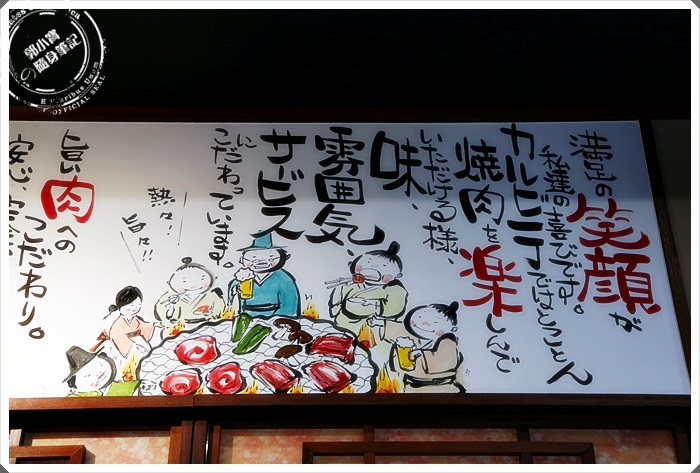 満足の笑顔が
私達の喜びです。
カルビ丁でけとことん
焼肉を楽しんで
いただける様、
味、
雰囲気、
サービス
にこだわっています。
熱々!
旨々!!
旨い肉への
こだわり。
安心、安全
郭小寶
の隨身筆記
OFFICIAL SEAL